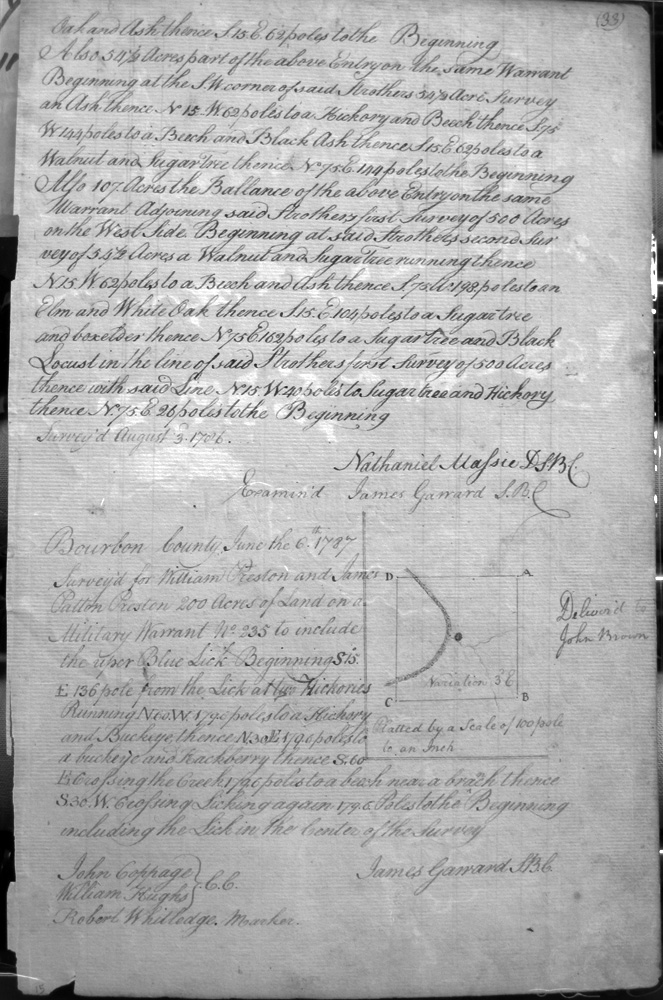 (33)
Oak and Ash thence S.15.E. 62 poles to the Beginning
Also 54½ Acres part of the above Entry on the same Warrant
Beginning at the S.W corner of said Strothers 54½ Acre Survey
an Ash thence N 15. W. 62 poles to a Hickory and Beech thence S.75
W 144 poles to a Beech and Black Ash thence S.15.E 62 poles to a
Walnut and Sugar tree thence N.75.E. 144 poles to the Beginning
Also 107 Acres the Ballance of the above Entry on the same
Warrant Adjoining said Strothers first Survey of 500 Acres
on the West Side Beginning at said Strothers second Sur
vey of 54½ Acres a Walnut and Sugar Tree running thence
N 15 W. 62 poles to a Beech and Ash thence S.75.W. 198 poles to an
Elm and White Oak thence S.15.E 104 poles to a Sugar tree
and box elder thence N 75 E 162 poles to a Sugar Tree and Black
Locust in the line of said Strothers first Survey of 500 Acres
thence with said Line N 15 W 40 poles to Sugar tree and Hickory
thence N.75.E 26 poles to the Beginning
Survey'd August 3. 1786.
Nathaniel Massie D.S.B.C.
Examin'd James Garrard S.B.C
Bourbon County June the 6.th 1787
Survey'd for William Preston and James
Patton Preston 200 Acres of Land on a
Military Warrant No. 235 to include
the uper Blue Lick Beginning S 15.
E 136 pole from the Lick at two Hickories
Running N 60. W. 179 poles to a Hickory
and Buckeye, thence N.30.E. 179 poles to
a buckeye and hackberry thence S. 60
E Crossing the Creek 179 poles to a beech near a brach thence
S.30.W. Crossing Licking again 179 Poles to the Beginning
including the Lick in the Center of the Survey
D A
C B
Variation 3° E
Platted by a Scale of 100 pole
to an Inch
Deliver'd to
John Brown
John Coppage
William Hughs
C.C.
Robert Whitledge. Marker.
James Garrard S.B.C